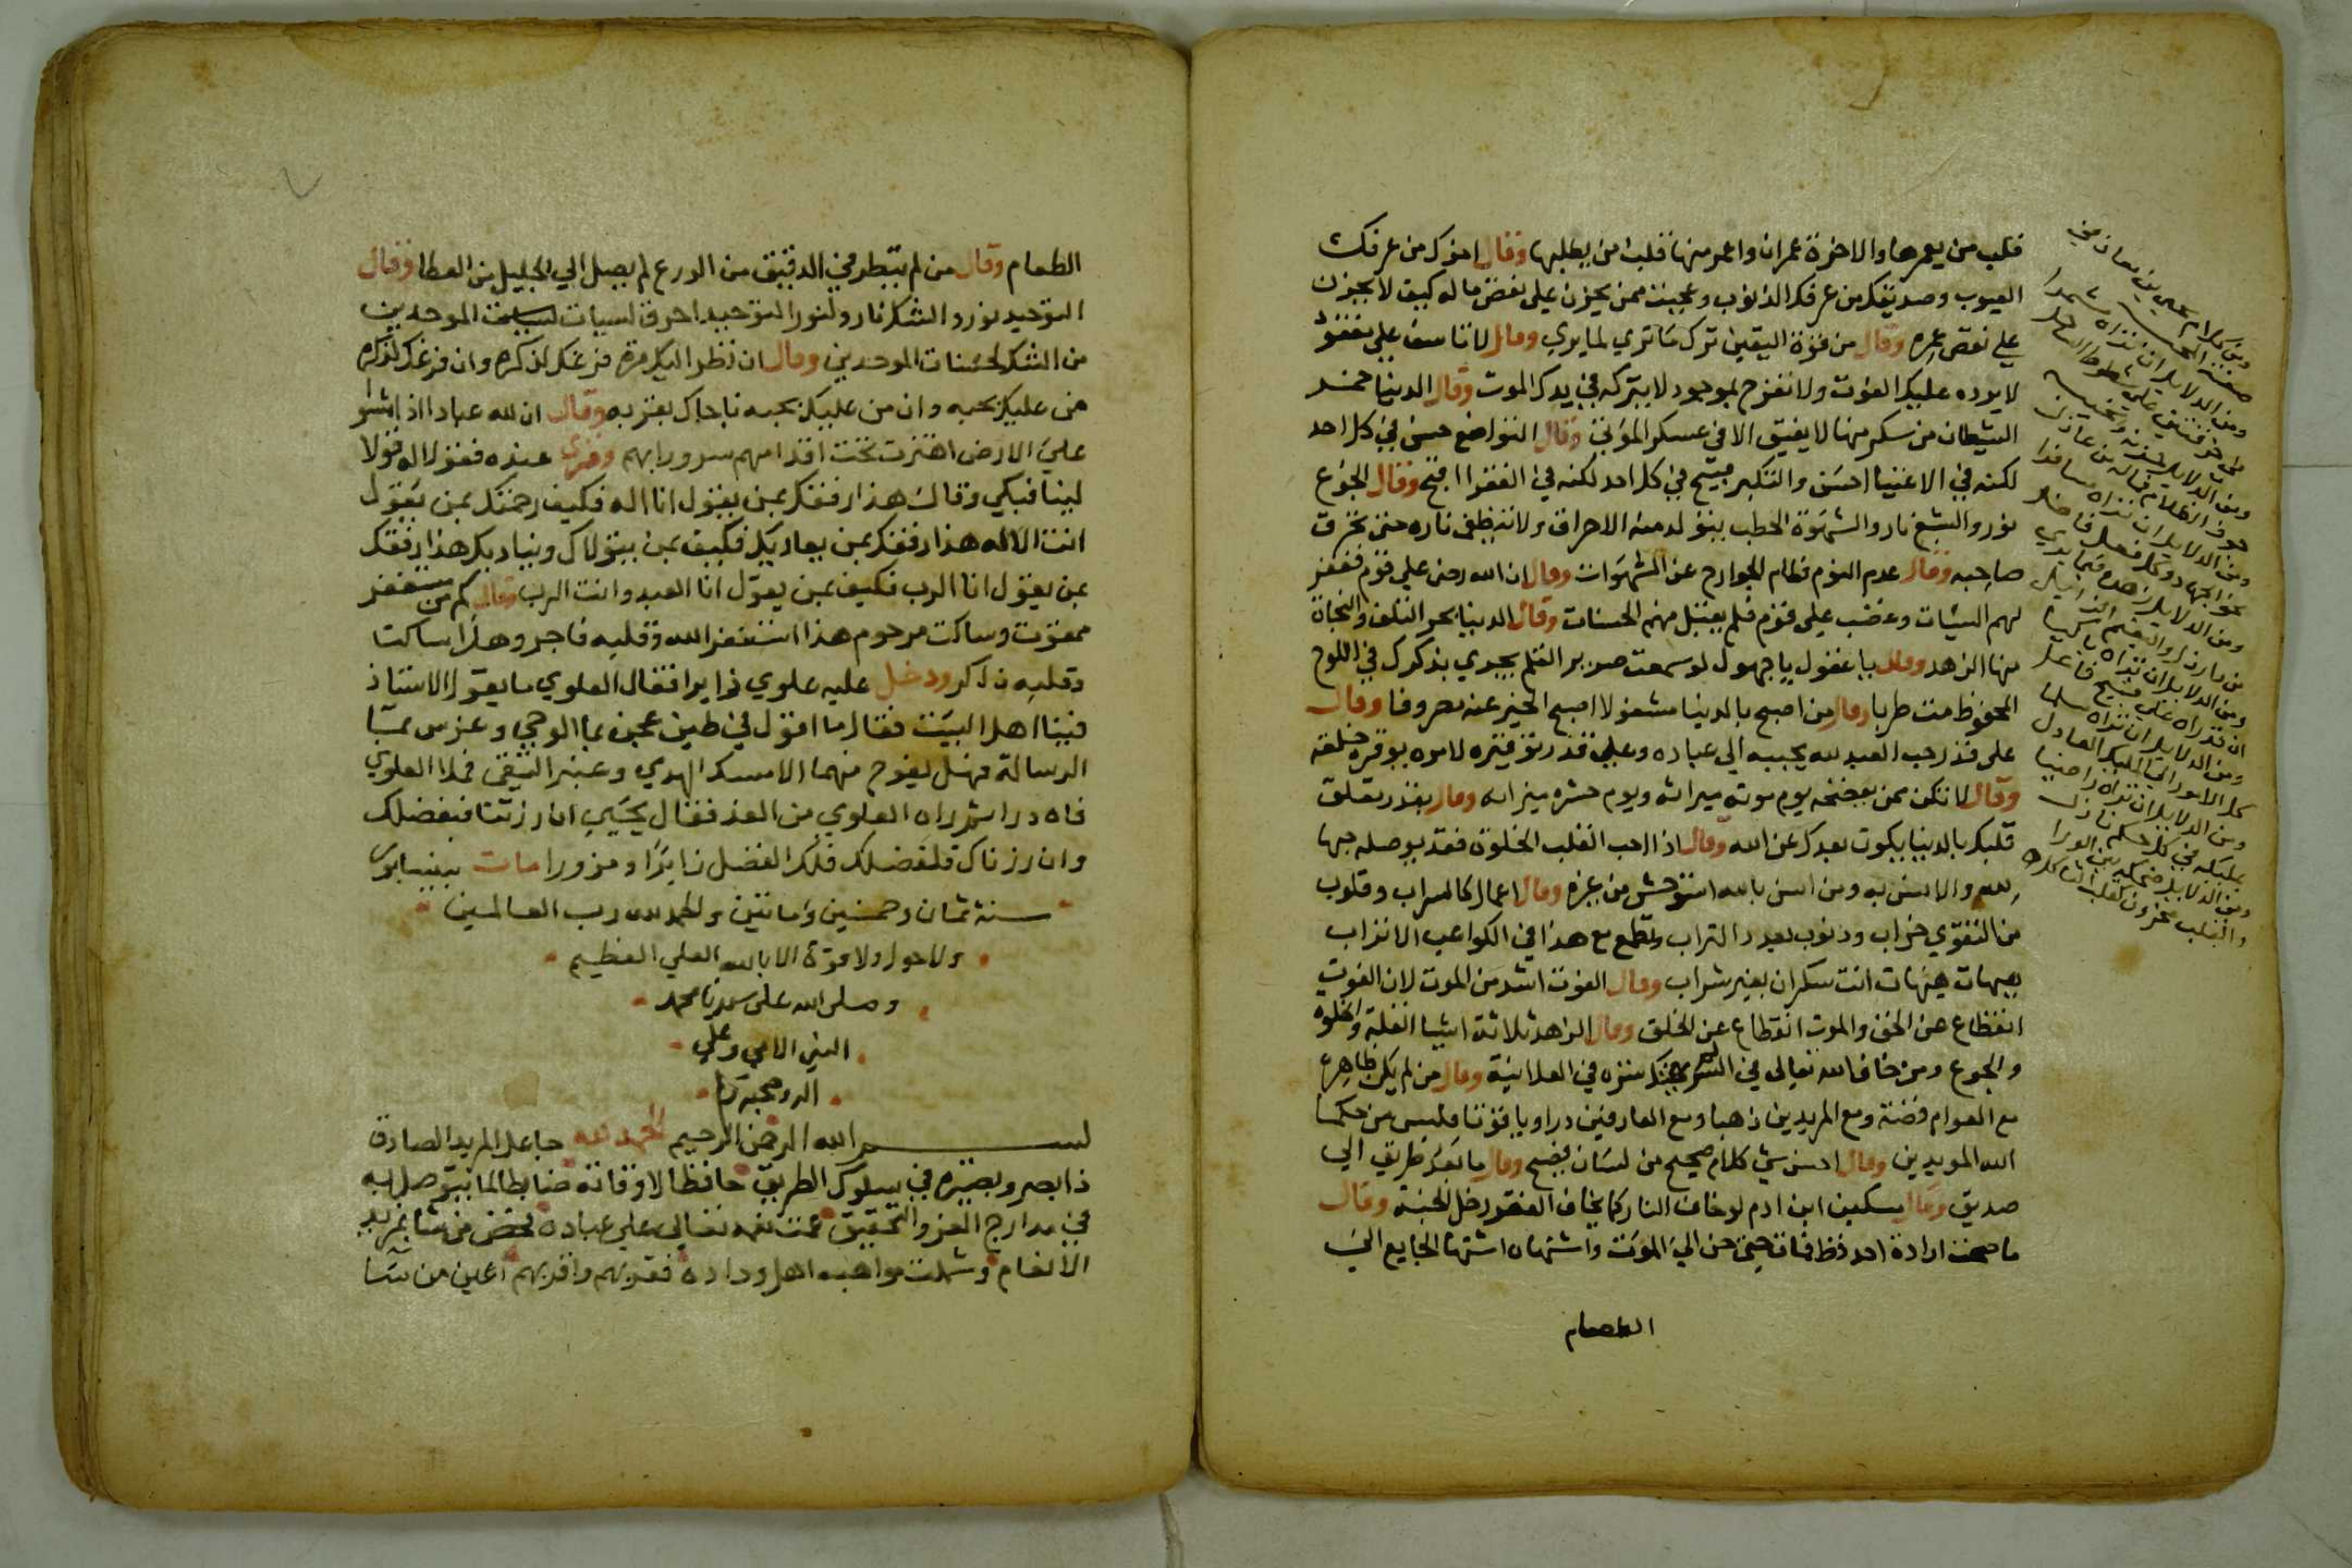 قلب من يعمرها والاخرة عمران واعمر منها قلب من يطلبها وقال اخوك من عرفك
العيوب وصديقك من عرفك الذنوب وعجبت ممن يحزن علي نقص ماله كيف لا يحزن
علي نقص عمره وقال من قوة اليقين ترك ما تري لما يري وقال لا تاسف علي مفقود
لا يرده عليك الفوت ولا تفرح بموجود لا يتركه في يدك الموت وقال الدنيا خمر
الشيطان من سكر منها لا يفيق الا في عسكر الموتي وقال التواضع حسن في كل احد
لكنه في الاغنيا احسن والتكبر قبيح في كل احد لكنه في الفقرا اقبح وقال الجوع
نور والشبع نار والشهوة الحطب يتولد منه الاحراق ولا تنطفي ناره حتي تحرق
صاحبه وقال عدم النوم فطام الجوارح عن الشهوات وقال ان الله رضي علي قوم فغفر
لهم السيئات وغضب علي قوم فلم يقبل منهم الحسنات وقال الدنيا بحر التلف والنجاة
منها الزهد وقال يا غفول يا جهول لو سمعت صرير القلم يجري بذكرك في اللوح
المحفوظ مت طربا وقال من اصبح بالدنيا مشغولا اصبح الخير عنه مصروفا وقال
علي قدر حب العبد لله يحببه الي عباده وعلي قدر توقيره لامره يوقره خلقه
وقال لا تكن ممن يفضحه يوم موته ميراثه ويوم حشره ميزانه وقال بقدر تعلق
قلبك بالدنيا يكون بعدك عن الله وقال اذا احب القلب الخلوة فقد يوصله حبها
والانس به ومن انس بالله استوحش من غيره وقال اعمال كالسراب وقلوب
من التقوي خراب وذنوب بعدد التراب وتطمع مع هذا في الكواعب الاتراب
هيهات هيهات انت سكران بغير شراب وقال الفوت اشد من الموت لان الفوت
انقطاع عن الحق والموت انقطاع عن الخلق وقال الزهد ثلاثة اشيا القلة والخلوه
والجوع ومن خان الله تعالي في السر هتك ستره في العلانية وقال من لم يكن ظاهره
مع العوام فضة ومع المريدين ذهبا ومع العارفين درا وياقوتا فليس من حكما
الله المويدين وقال احسن شي كلام صحيح من لسان فصيح وقال ما بعد طريق الي
صديق وقال مسكين ابن ادم لو خاف النار كما يخاف الفقر دخل الجنة وقال
ما صحت ارادة احد قط فمات حتي حن الي الموت واشتهاه اشتها الجايع الي
الطعام
ومن كلام يحيي بن معاذ في
صفة المحب
ومن الدلايل ان تراه
ومن الدلايل حزنه ونحيبه
جوف الظلام فما له من عاذل
ومن الدلايل ان تراه مسافرا
نحو الجهاد وكل فعل فاضل
ومن الدلايل زهده فيما يري
من دار ذل والنعيم الزايل
ومن الدلايل ان تراه باكيا
ان قد راه علي قبيح فاعل
ومن الدلايل ان تراه مسلما
كل الامور الي المليك العادل
ومن الدلايل ان تراه راضيا
بمليكه في كل حكم نازل
ومن الدلايل ضحكه بين الورا
والقلب محزون كقلب الثاكل
الطعام وقال من لم ينظر في الدقيق من الورع لم يصل الي الجليل من العطا وقال
التوحيد نور والشرك نار ولنور التوحيد احرق لسيات الموحدين
من الشرك لحسنات الموحدين وقال ان نظر اليك مرة فرغك لذكره وان فرغك لذكره
من عليك بحبه وان من عليك بحبه ناجاك بقربه وقال ان لله عبادا اذا مشوا
علي الارض اهتزت تحت اقدامهم سرورا بهم وقري عنده فقولا له قولا
لينا فبكي وقال هذا رفقك بمن يقول انا اله فكيف رحمتك بمن يقول
انت الاله هذا رفقك بمن يعاديك فكيف بمن يتولاك ويناديك هذا رفقك
بمن يقول انا الرب فكيف بمن يقول انا العبد وانت الرب وقال كم من مستغفر
ممقوت وساكت مرحوم هذا استغفر الله وقلبه فاجر وهذا ساكت
وقلبه ذاكر ودخل عليه علوي زايرا فقال العلوي ما يقول الاستاذ
فينا اهل البيت فقال ما اقول في طين عجن بما الوحي وغرس بما
الرسالة فهل يفوح منهما الا مسك الهدي وعنبر التقي فملا العلوي
فاه درا ثم زاره العلوي من الغد فقال يحيي ان زرتنا فبفضلك
وان زرناك فلفضلك فلك الفضل زايرا ومزورا مات بنيسابور
سنة ثمان وخمسين ومائتين والحمد لله رب العالمين
ولا حول ولا قوة الا بالله العلي العظيم
وصلي الله علي سيدنا محمد
النبي الامي وعلي
اله وصحبه
بسم الله الرحمن الرحيم الحمد لله جاعل المريد الصادق
ذا بصر وبصيرة في سلوك الطريق حافظا لاوقاته ضابطا لما يتوصل به
في مدارج العز والتحقيق عمت نعمه تعالي علي عباده فخص من شا بمزيد
الانعام وشملت مواهبه اهل وداده فقربهم واقربهم اعين من شا